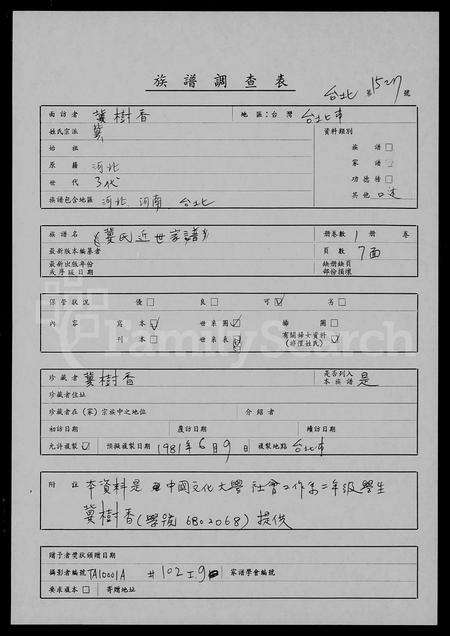 族譜調查表
台北 第1527號
面訪者 冀樹香 地區：台灣 台北市
姓氏宗派 冀 資料類別
始祖 族譜□
原籍 河北 家譜□
世代 3代 功德榜□
族譜包含地區 河北、河南 台北 其他 口述
族譜名 《冀氏近世家譜》 冊卷數 1冊 卷
最新版本編纂者 頁數 7面
最新出版年份或序跋日期 缺冊缺頁部份損壞
保管狀況 優□ 良□ 可☑ 劣□
內容 寫本☑ 世系圖☑ 插圖□
刊本□ 世系表☑ 有關婦女資料(非僅姓氏)☑
珍藏者 冀樹香 是否列入本族譜 是
珍藏者住址
珍藏者在(家)宗族中之地位 介紹者
初訪日期 覆訪日期 續訪日期
允許複製☑ 預擬複製日期 1981年6月9日 複製地點 台北市
附註 本資料是中國文化大學社會工作系二年級學生
冀樹香(學號 6802068)提供
贈予者獎狀頒贈日期
攝影者編號 TA10001A #102 I.9 家譜學會編號
要求複本□ 寄贈地址
FamilySearch